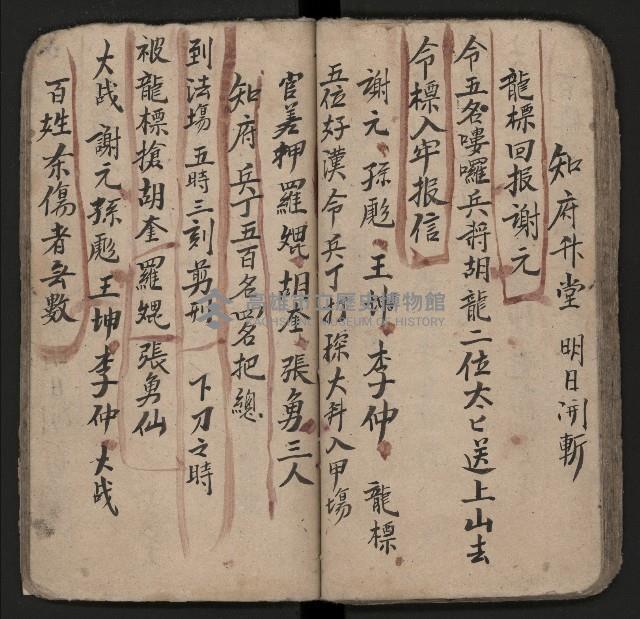 知府升堂 明日開斬
龍標回报謝元
令五名嘍囉兵将胡龍二位太〻送上山去
令標入牢报信
謝元 孫彪 王坤 李仲 龍標
五位好漢令兵丁打探大料入甲場
官差押羅焜 胡奎 張勇三人
知府 兵丁五百名 四名把總
到法場 五時三刻剪形 下刀之時
被龍標搶胡奎 羅焜 張勇仙
大战 謝元 孫彪 王坤 李仲 大战
百姓余傷者无數
高雄市立歷史博物館
KAOHSIUNG MUSEUM OF HISTORY